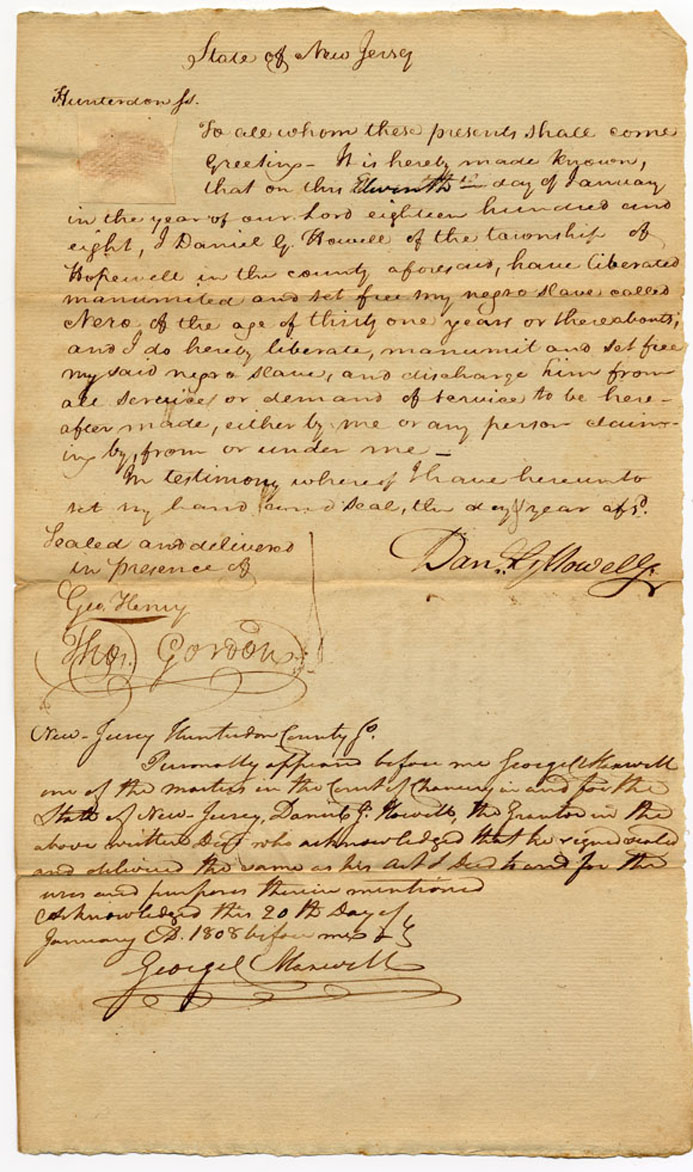 State of New Jersey
Hunterdon Ss.
To all whom these presents shall come
Greeting - It is hereby made known,
that on this day of January
in the year of our Lord eighteen hundred and
eight, I Daniel G. Howell of the township of
Hopewell in the county aforesaid, have liberated
manumited and set free my negro slave called
Nero of the age of thirty one years or thereabouts;
and I do hereby liberate, manumit and set free
my said negro slave, and discharge him from
all service or demand of service to be here-
after made, either by me or any person claim-
ing by, from or under me -
In testimony whereof I have hereunto
set my hand and seal, the day & year afsd.
Sealed and delivered
in presence of
Danl. G. Howell
Geo. Henry
Thos. Gordon
New-Jersey Hunterdon County Ss.
Personally appeared before me George C Maxwell
one of the masters in the Court of Chancery in and for the
State of New-Jersey, Daniel G. Howell, the Grantor in the
above written Deed who acknowledged that he signed sealed
and delivered the same as his Act & Deed to and for the
uses and purposes therein mentioned
Acknowledged this 20th Day of
January AD. 1808 before me
George C Maxwell